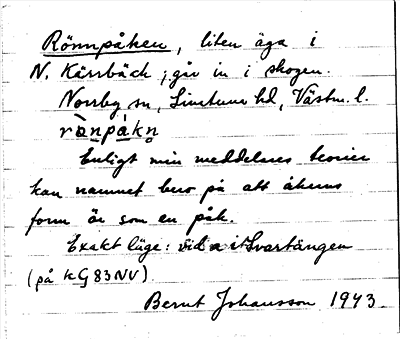 Rönnpåken, liten äga i
N. Kärrbäck; går in i skogen.
Norrby sn, Simtuna hd, Västm. l.
rö̀npåkn̥
Enligt min meddelares teorier
kan namnet bero på att åkerns
form är som en påk.
Exakt läge: vid a i Svartängen
(på kG 83 NV)
Bernt Johansson 1943